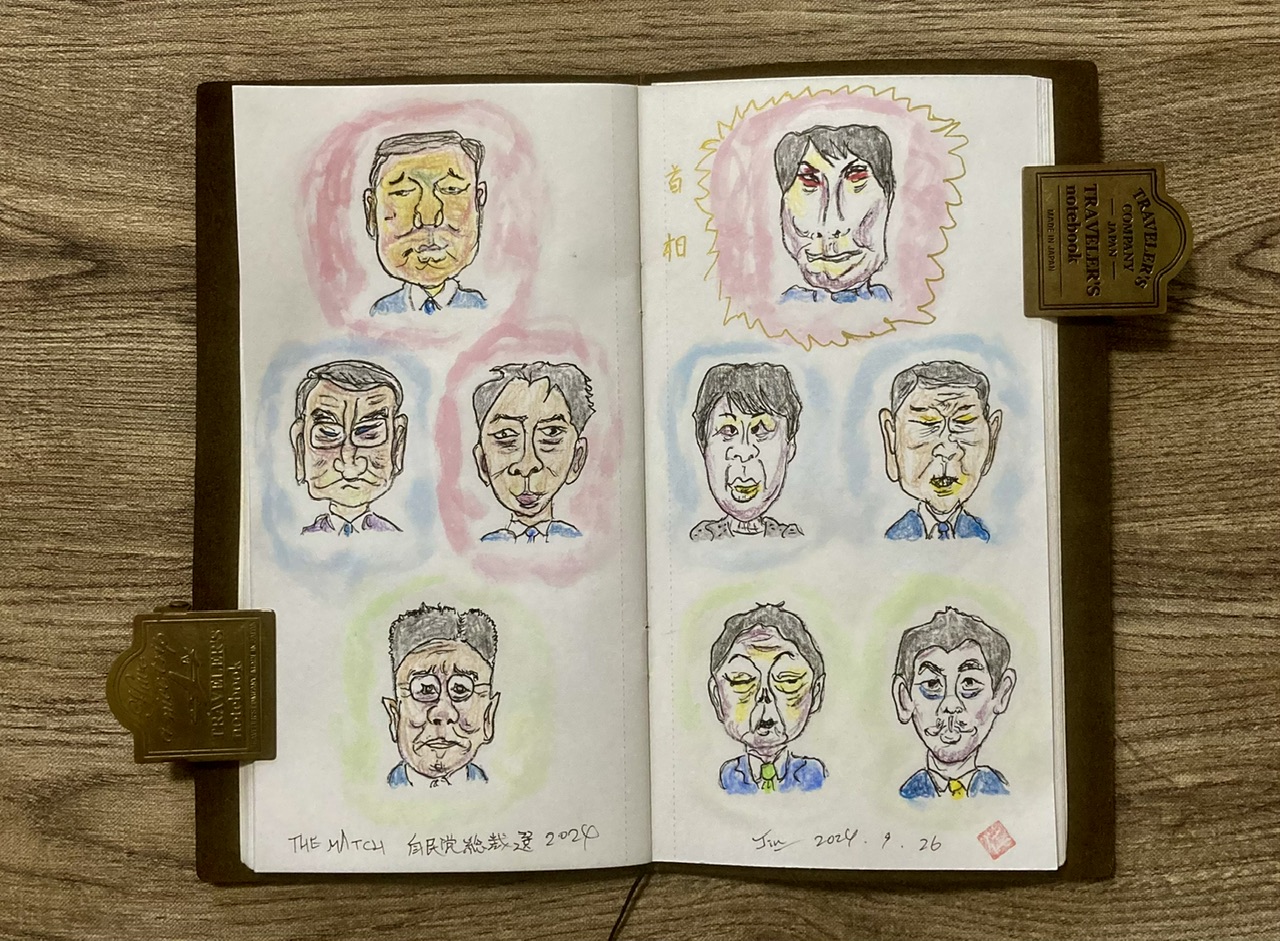 首
相
THE MATCH 自民党総裁選 2024
Jin 2024. 9. 26
TRAVELER'S
COMPANY
— JAPAN —
TRAVELER'S
notebook
MADE IN JAPAN
TRAVELER'S
notebook